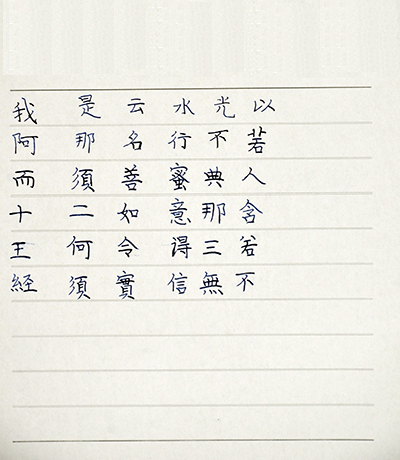 我是云水光以
阿那名行不若
而須善蜜典人
十二如意那含
王何令得三若
経須實信無不